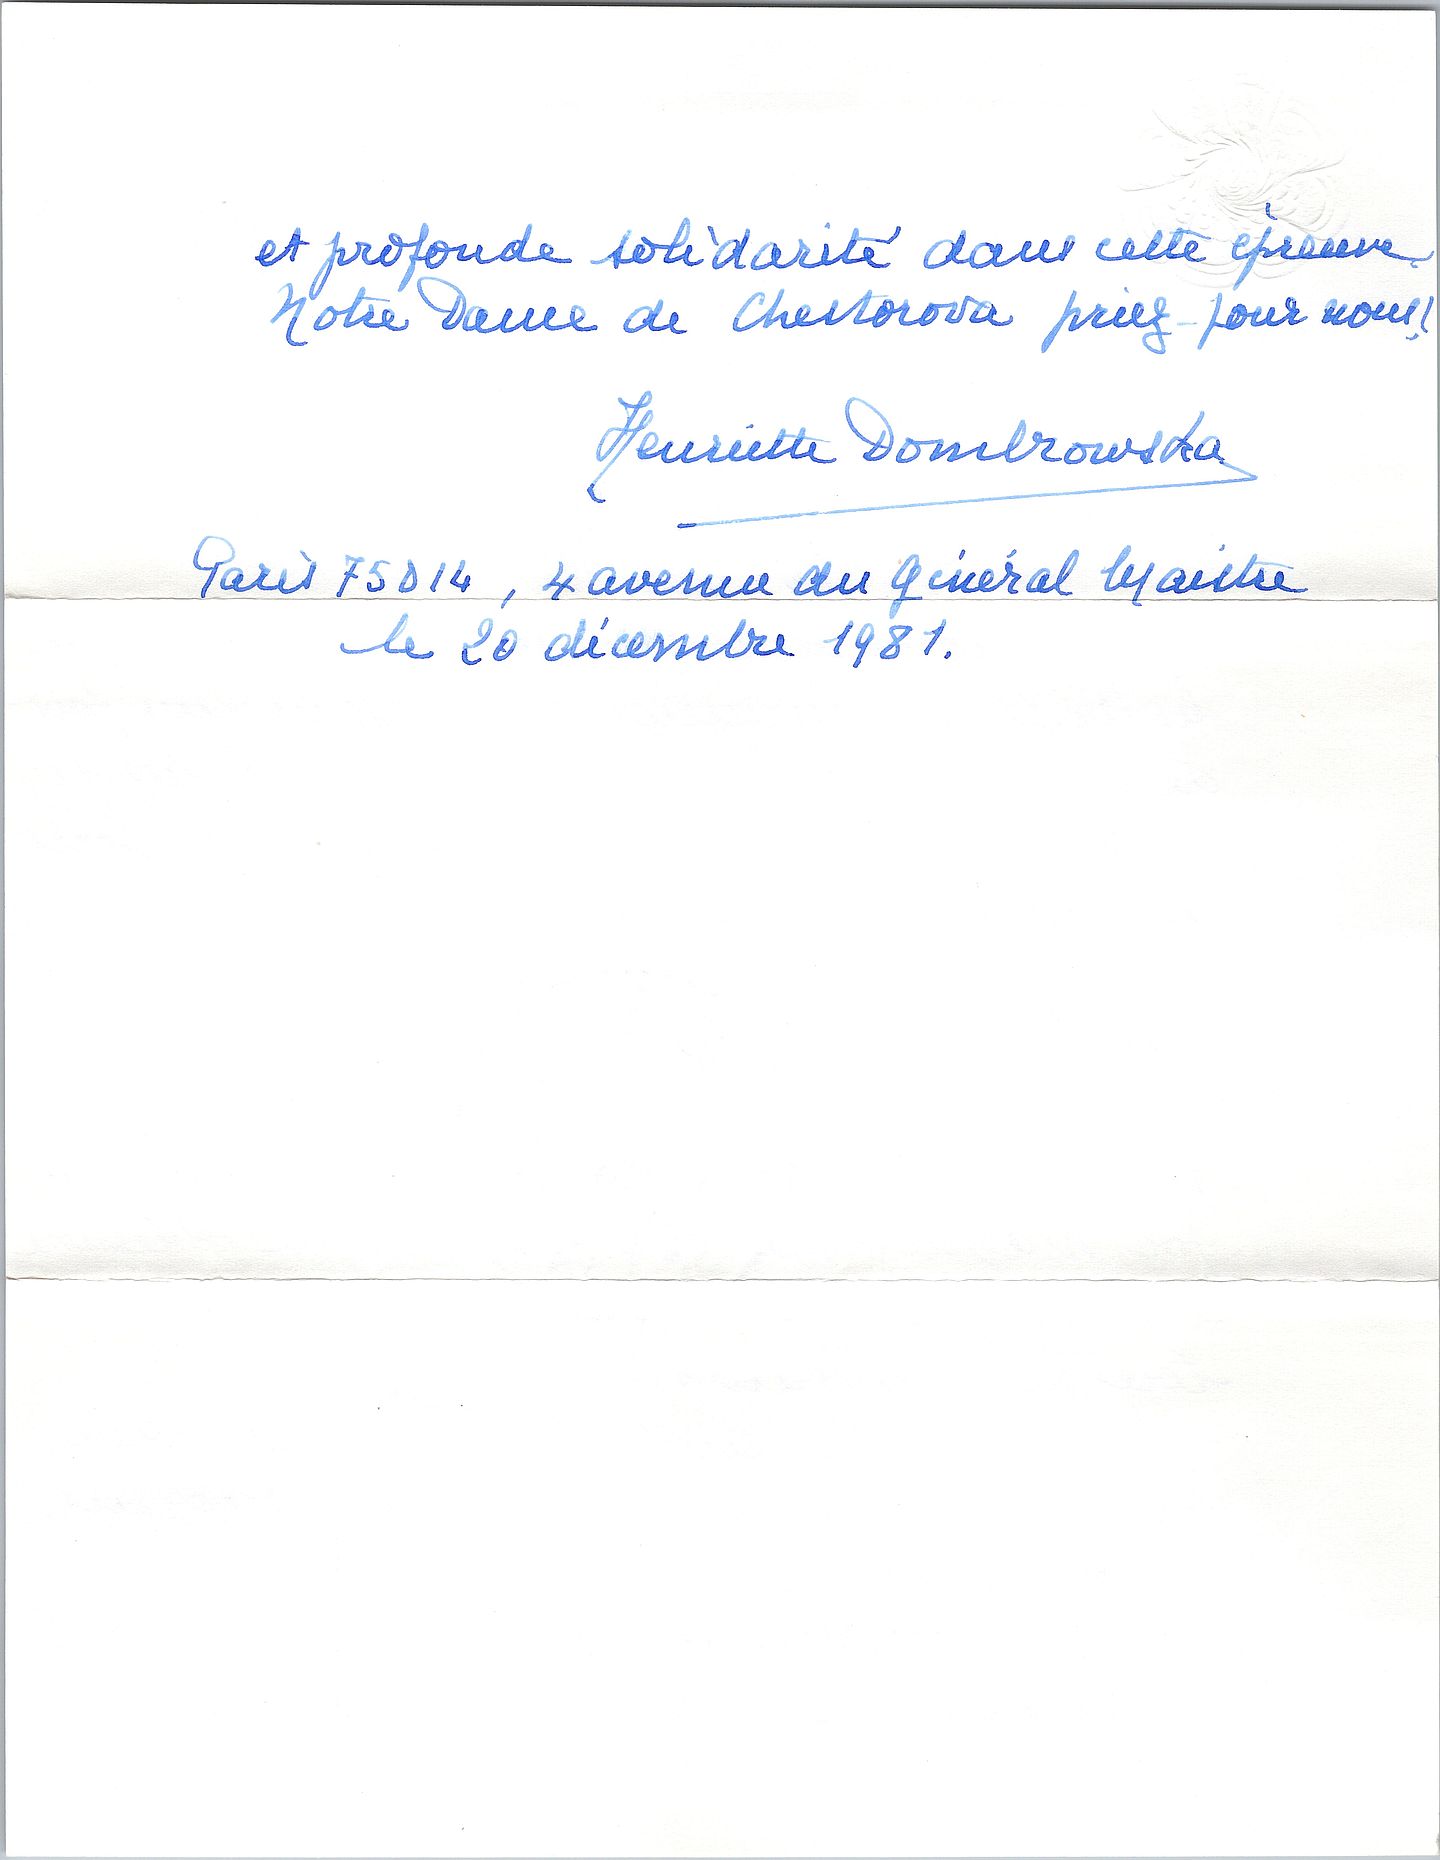 et profonde solidarité dans cette épreuve.
Notre Dame de Chestorova priez-pour nous!
Henriette Dombrowska
Paris 75014, 4 avenue du Général Maistre
le 20 décembre 1981.